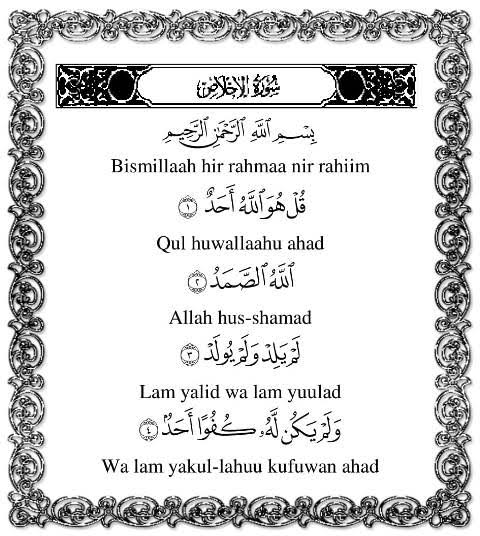 سُورَةُ الإِخْلَاصِ
بِسْمِ ٱللَّهِ ٱلرَّحْمَٰنِ ٱلرَّحِيمِ
Bismillaah hir rahmaa nir rahiim
قُلْ هُوَ ٱللَّهُ أَحَدٌ ١
Qul huwallaahu ahad
ٱللَّهُ ٱلصَّمَدُ ٢
Allah hus-shamad
لَمْ يَلِدْ وَلَمْ يُولَدْ ٣
Lam yalid wa lam yuulad
وَلَمْ يَكُن لَّهُۥ كُفُوًا أَحَدٌۢ ٤
Wa lam yakul-lahuu kufuwan ahad